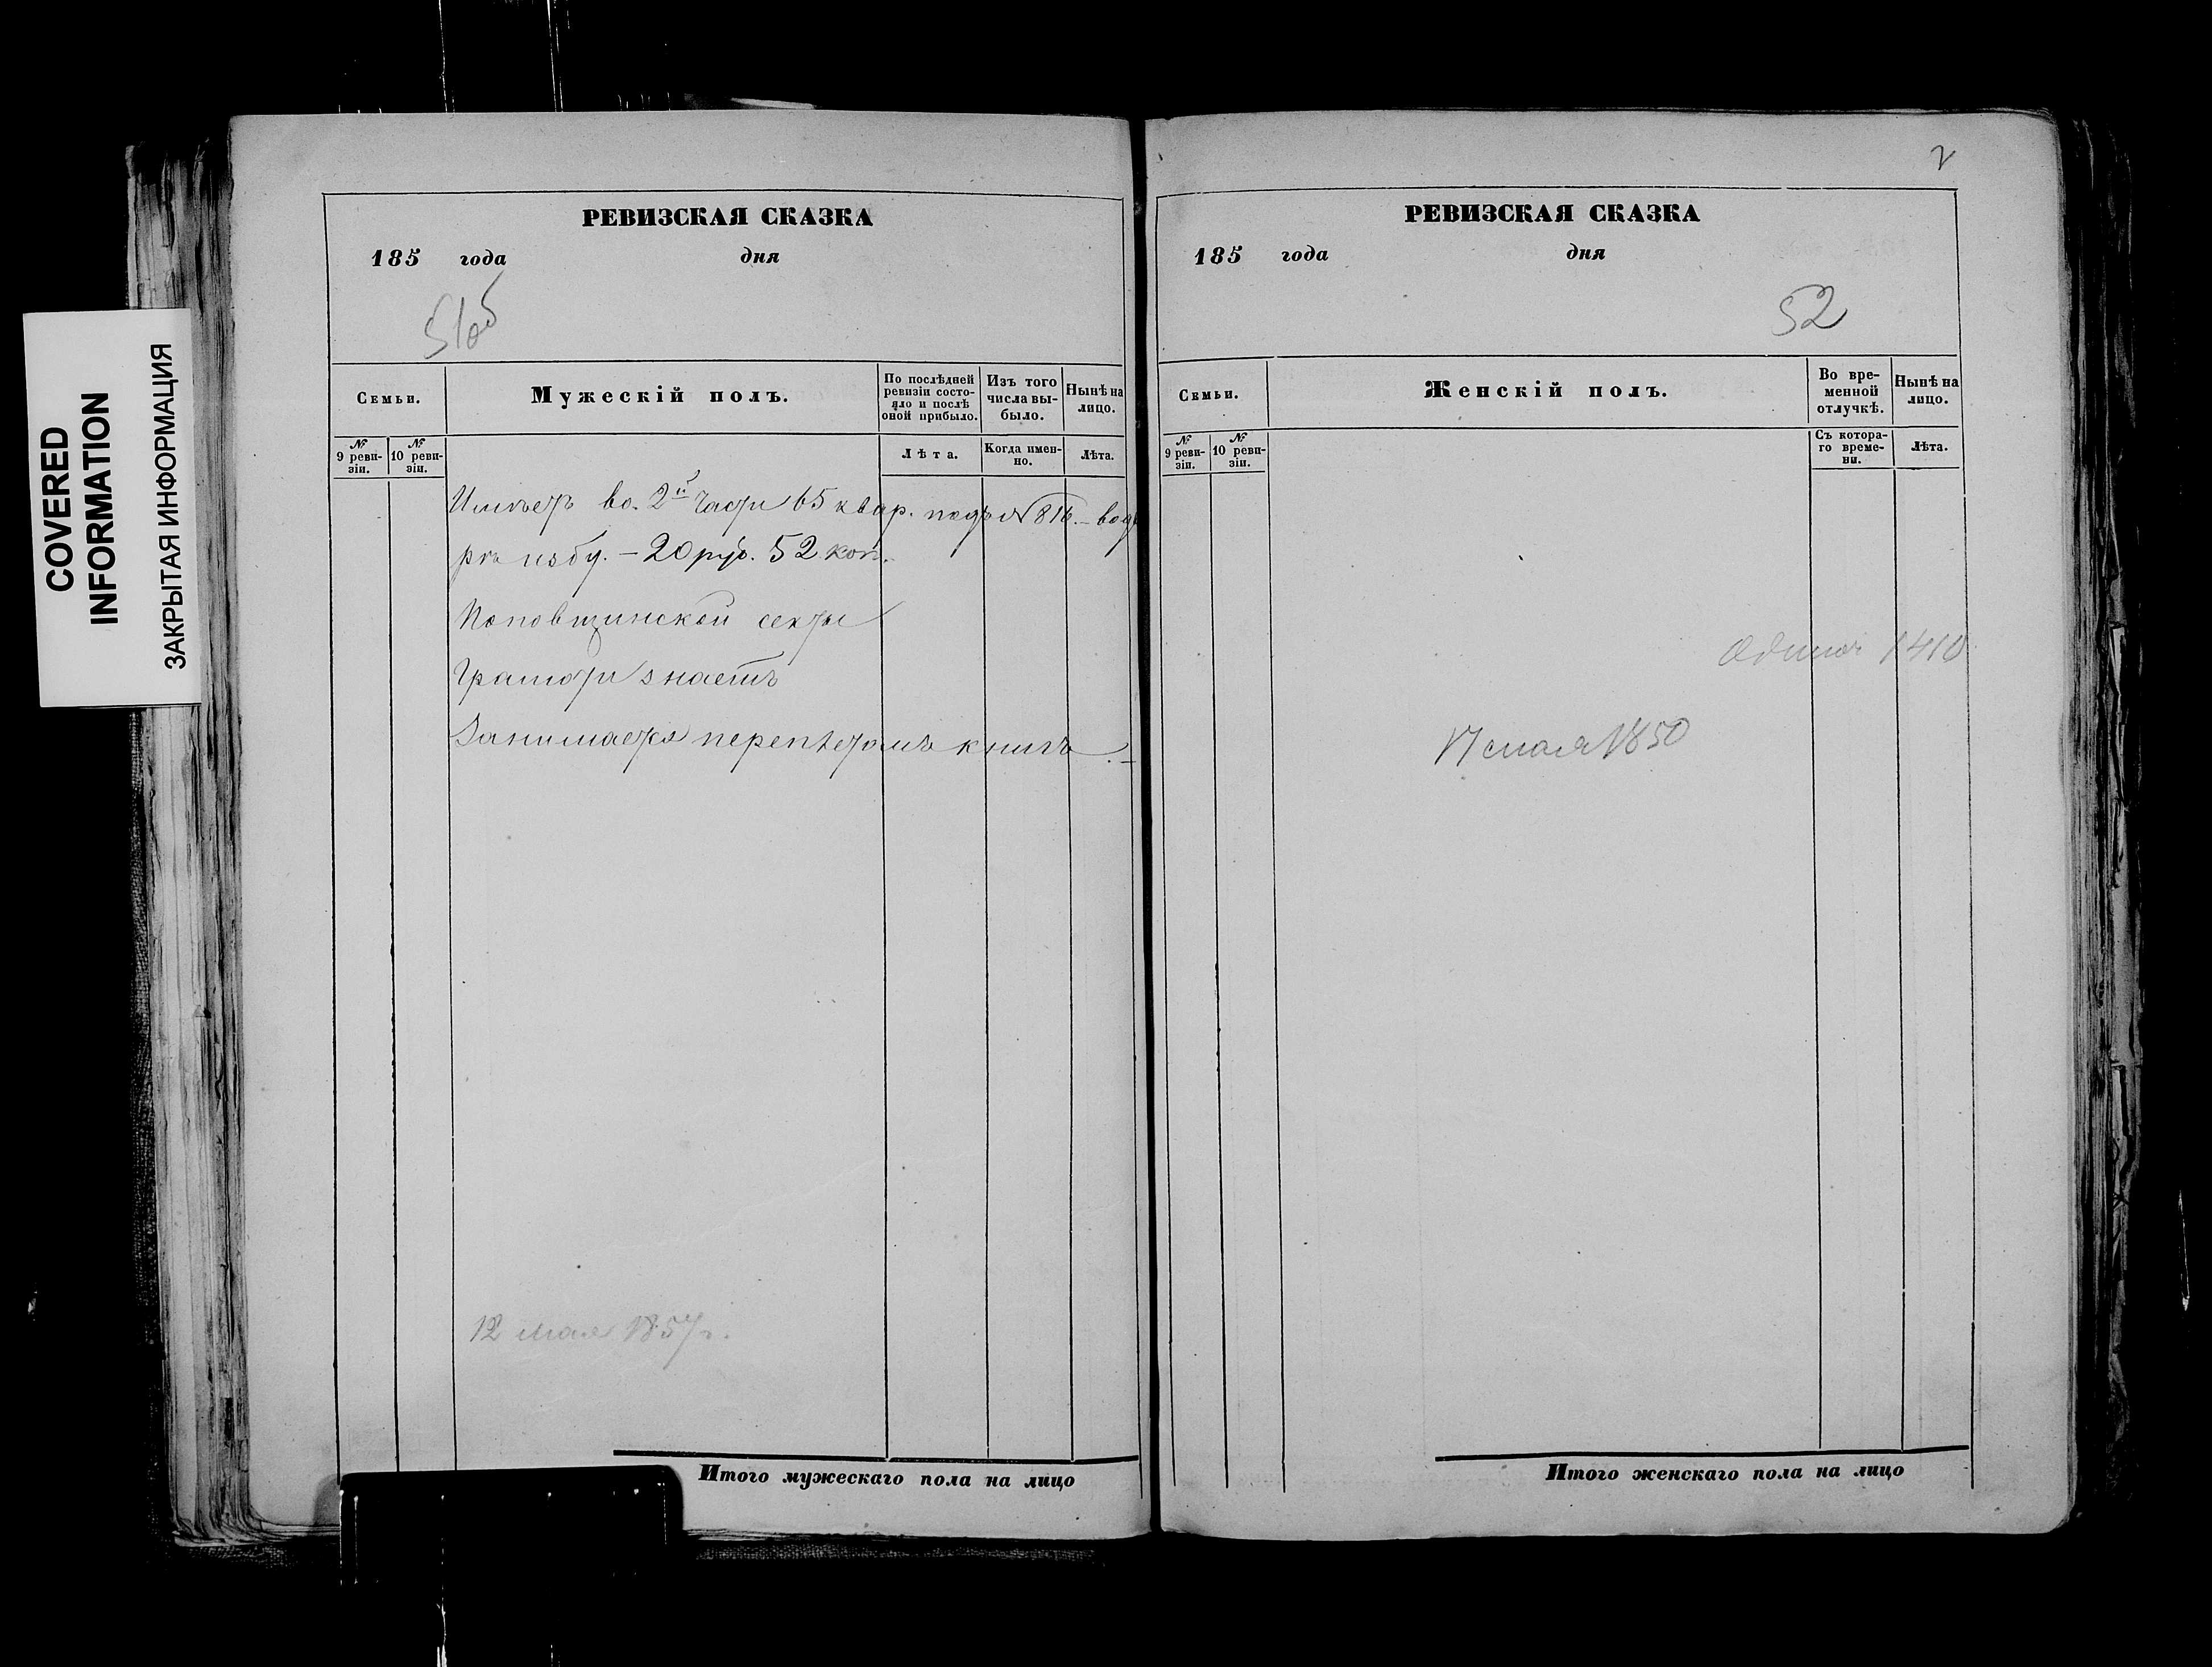 COVERED
INFORMATION
ЗАКРЫТАЯ ИНФОРМАЦИЯ
РЕВИЗСКАЯ СКАЗКА
185 года дня
51об
Семьи.
Мужескій полъ.
По послѣдней ревизіи состояло и послѣ оной прибыло.
Изъ того числа выбыло.
Нынѣ на лицо.
№ 9 ревизіи.
№ 10 ревизіи.
Лѣта.
Когда именно.
Лѣта.
Имѣетъ во. 2й части 65 квар. подъ № 816. –
избу. – 20 руб. 52 коп.
Поповщинской секты
Грамоти знаетъ
Занимается переплетомъ книгъ. –
12 мая 1857 г.
Итого мужескаго пола на лицо
2
РЕВИЗСКАЯ СКАЗКА
185 года дня
52
Семьи.
Женскій полъ.
Во временной отлучкѣ.
Нынѣ на лицо.
№ 9 ревизіи.
№ 10 ревизіи.
Съ котораго времени.
Лѣта.
1850
Итого женскаго пола на лицо